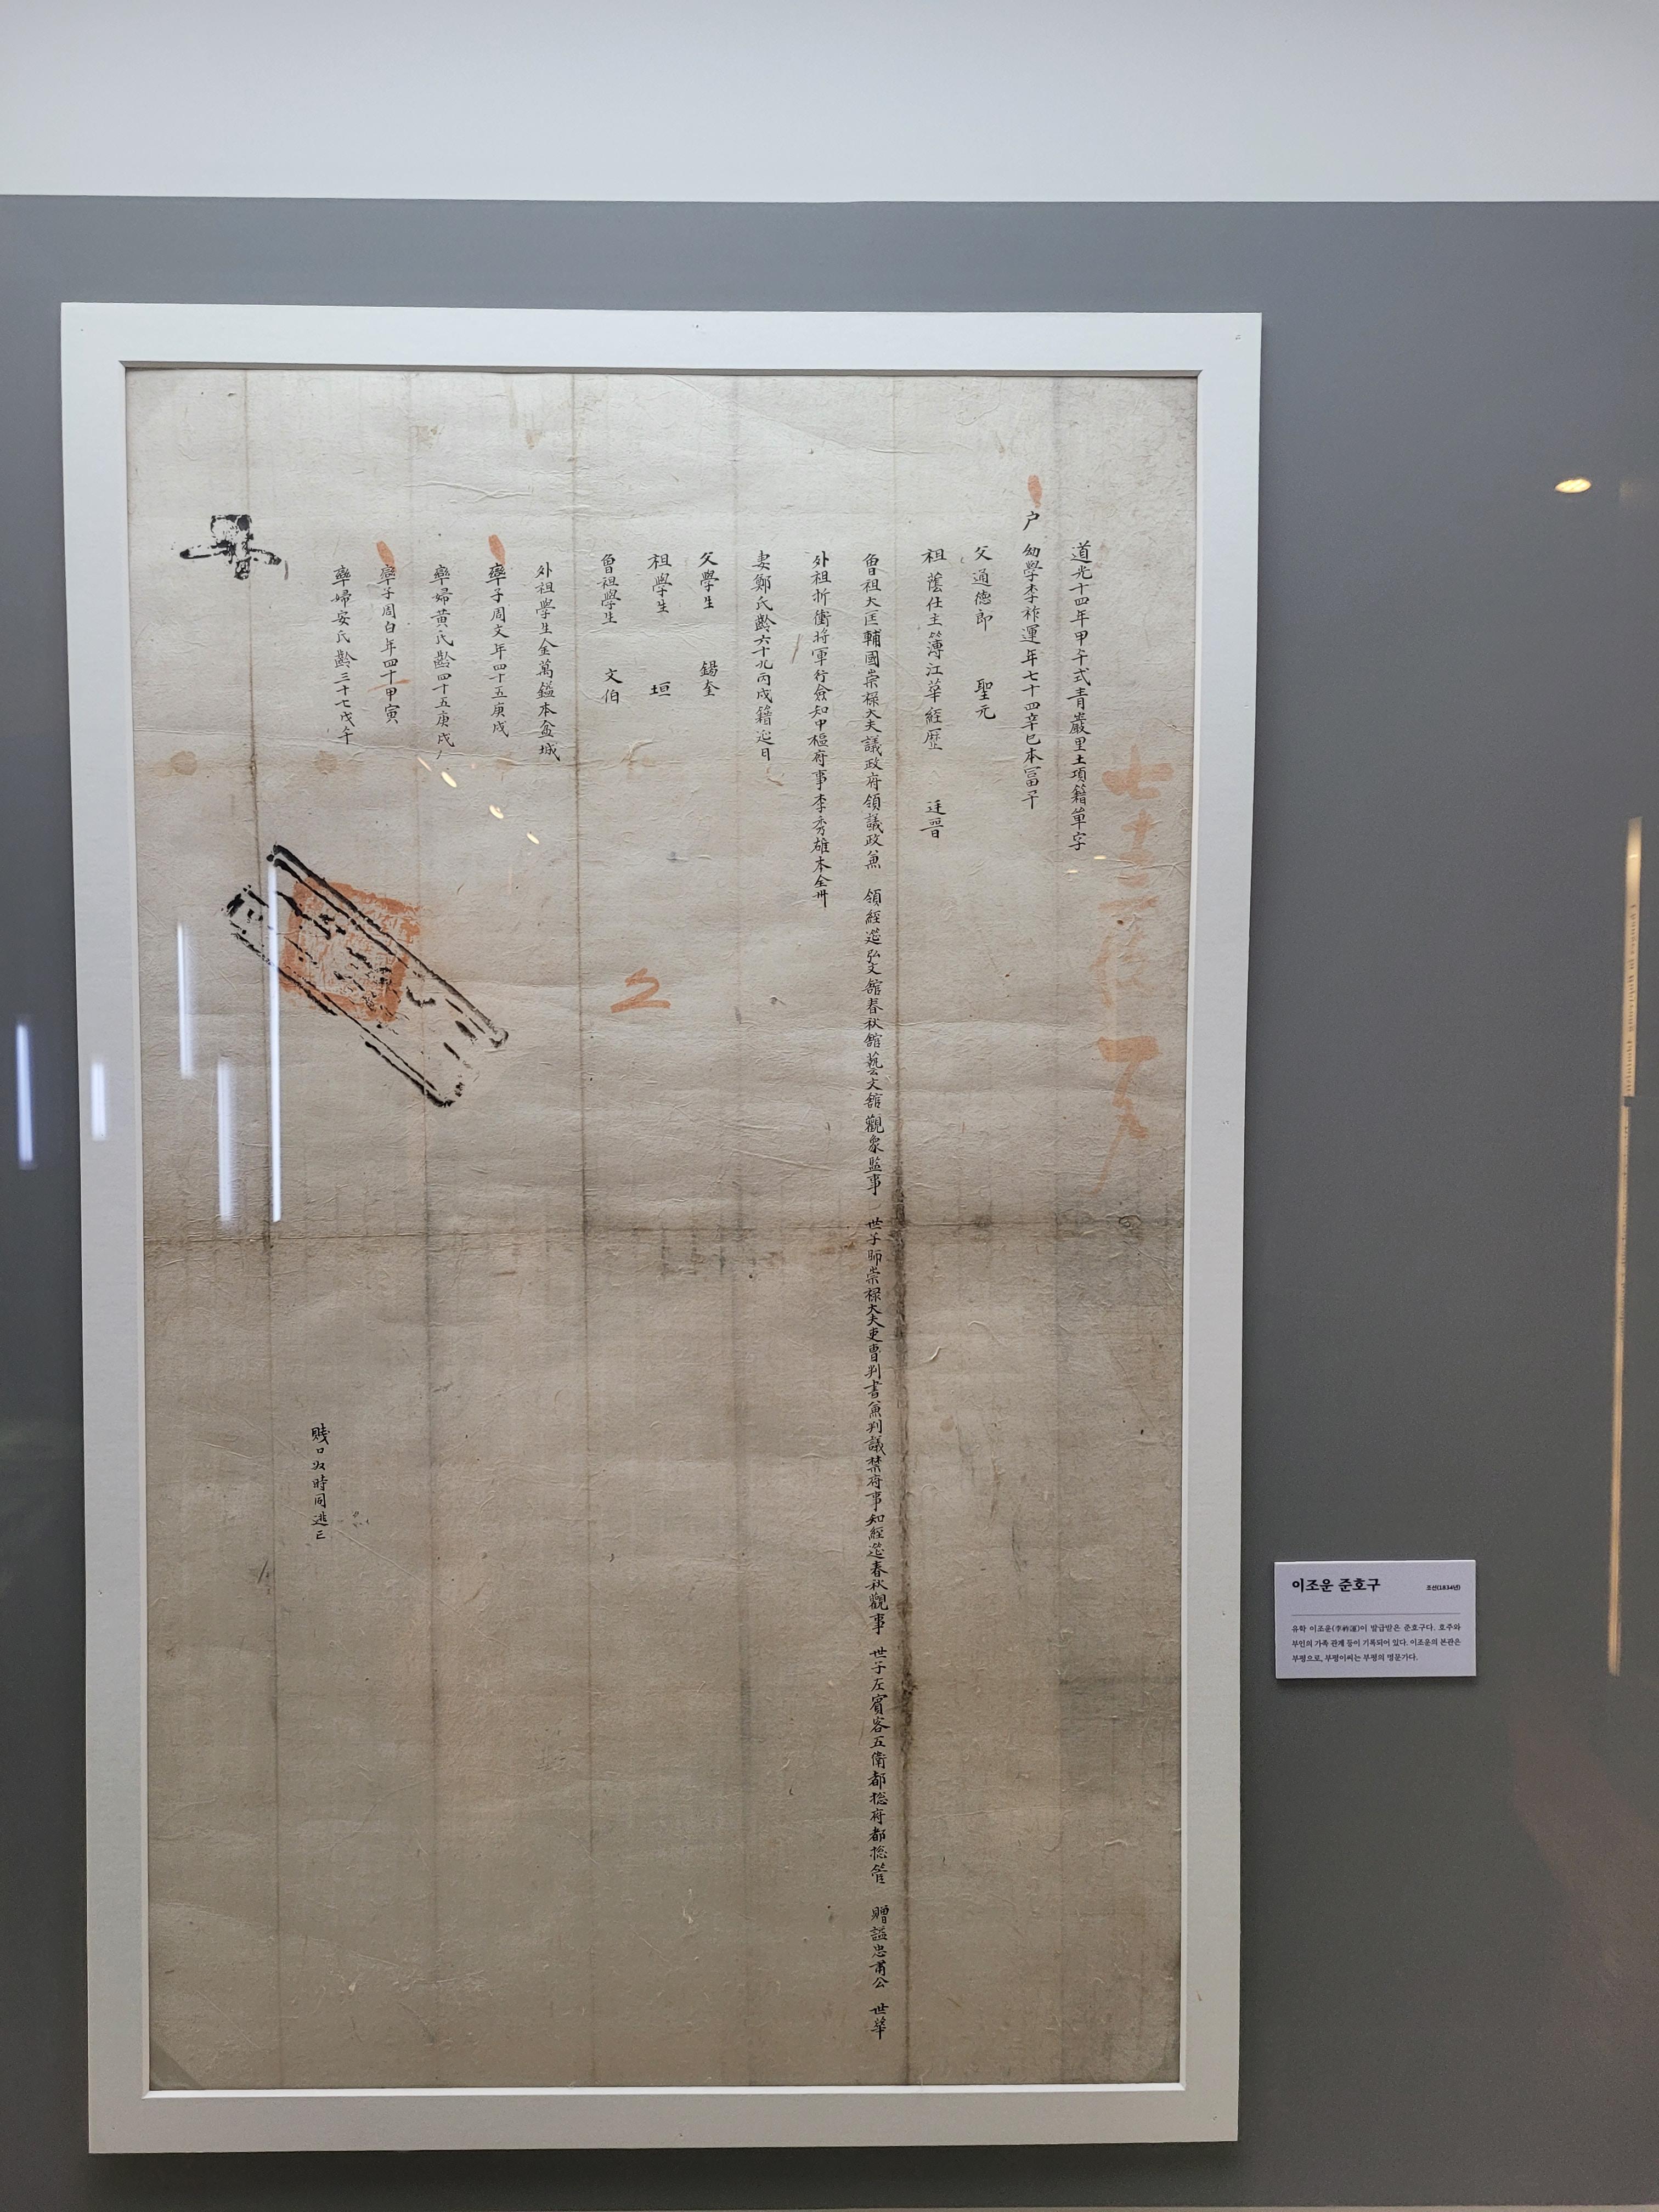 道光十四年甲午式青巖里土項籍單字
户 幼學李祚運年七十四辛巳本富平
父通德郎 聖元
祖蔭仕主簿江華經歷 廷晋
曾祖大匡輔國崇祿大夫議政府領議政兼 領經筵弘文舘春秋舘藝文舘觀象監事 世子師崇祿大夫吏曹判書兼判議禁府事知經筵春秋觀事 世子左賓客五衛都捴府都捴管 贈謚忠肅公 世華
外祖折衝將軍行僉知中樞府事李秀雄本全州
妻鄭氏齡六十九丙戌籍迎日
父學生 錫奎
祖學生 垣
曾祖學生 文伯
外祖學生金萬鎰本盆城
率子周文年四十五庚戌
率婦黃氏齡四十五庚戌
率子周白年四十甲寅
率婦安氏齡三十七戊午
賤口奴時同逃亡
이조운 준호구
조선(1834년)
유학 이조운(李祚運)이 발급받은 준호구다. 호주와
부인의 가족 관계 등이 기록되어 있다. 이조운의 본관은
부평으로, 부평이씨는 부평의 명문가다.